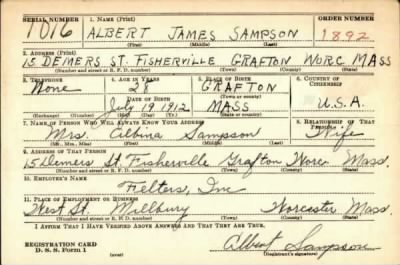 SERIAL NUMBER 1. NAME (Print) ORDER NUMBER
1016 ALBERT JAMES SAMPSON 1892
(First) (Middle) (Last)
2. ADDRESS (Print)
15 DEMERS ST. FISHERVILLE GRAFTON WORC MASS
(Number and street or R. F. D. number) (Town) (County) (State)
3. TELEPHONE 4. AGE IN YEARS 5. PLACE OF BIRTH 6. COUNTRY OF CITIZENSHIP
None 28 GRAFTON
(Town or county)
DATE OF BIRTH
July 19 1912 MASS U.S.A.
(Exchange) (Number) (Mo.) (Day) (Yr.) (State or country)
7. NAME OF PERSON WHO WILL ALWAYS KNOW YOUR ADDRESS 8. RELATIONSHIP OF THAT PERSON
Mrs. Albina Sampson Wife
(Mr., Mrs., Miss) (First) (Middle) (Last)
9. ADDRESS OF THAT PERSON
15 Demers St. Fisherville Grafton Worc. Mass.
(Number and street or R. F. D. number) (Town) (County) (State)
10. EMPLOYER'S NAME
Felters, Inc
11. PLACE OF EMPLOYMENT OR BUSINESS
West St. Millbury Worcester Mass.
(Number and street or R. F. D. number) (Town) (County) (State)
I AFFIRM THAT I HAVE VERIFIED ABOVE ANSWERS AND THAT THEY ARE TRUE.
REGISTRATION CARD
D. S. S. Form 1 (over) Albert Sampson
(Registrant's signature)